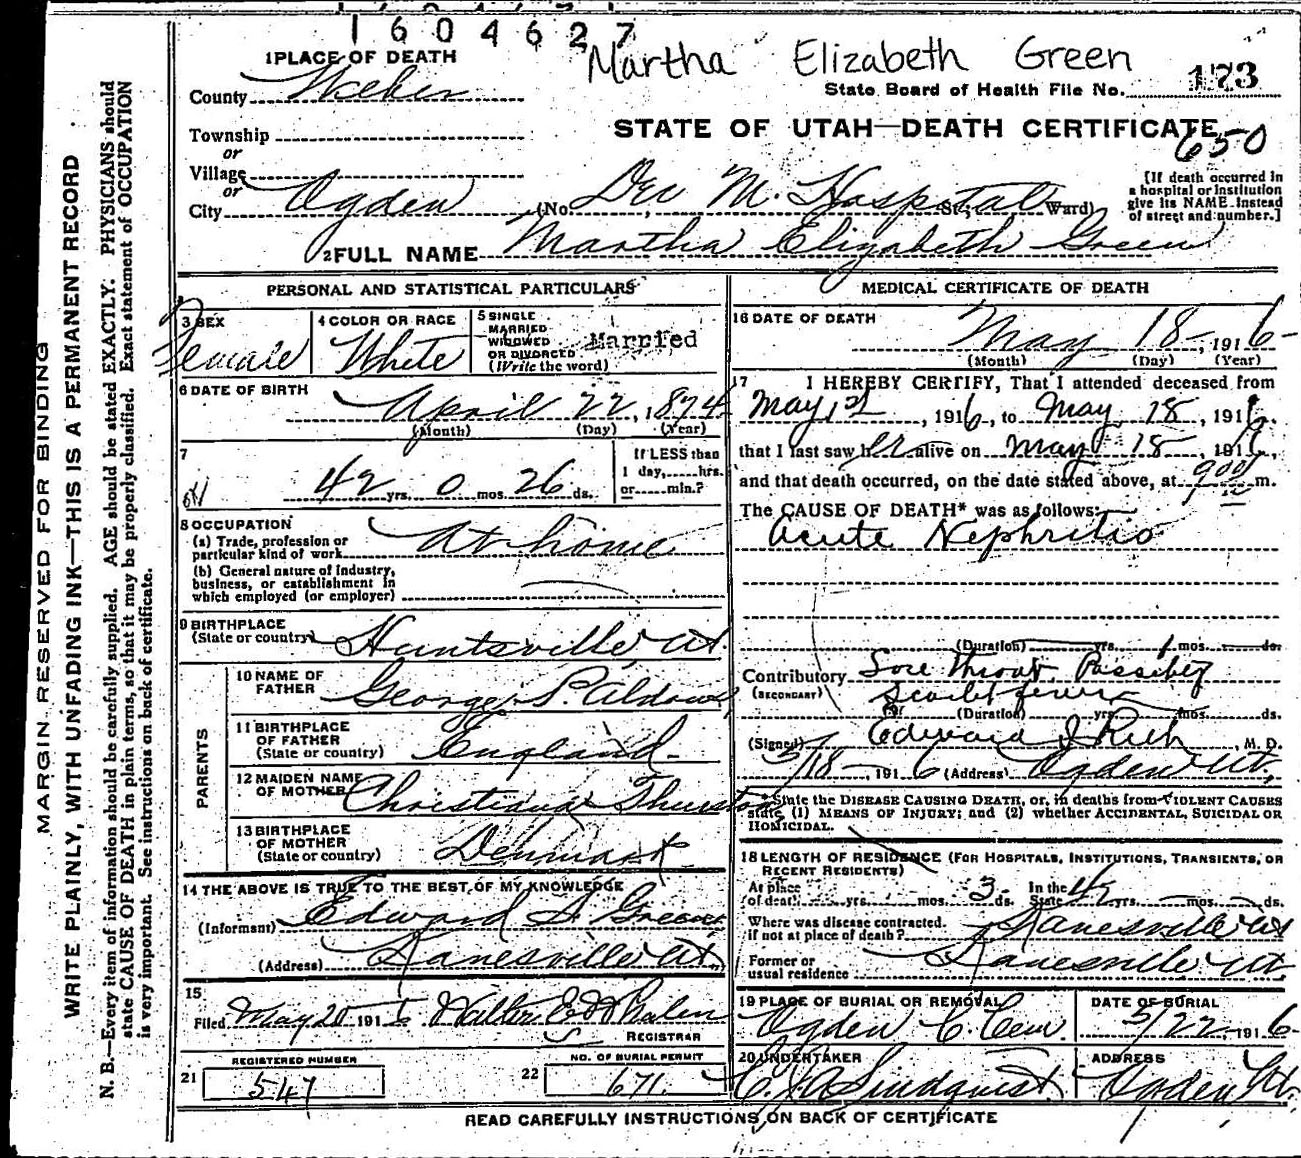 1604627
Martha Elizabeth Green
1 PLACE OF DEATH
County Weber
State Board of Health File No. 173
Township
or
STATE OF UTAH—DEATH CERTIFICATE
650
Village
or
City Ogden (No. Dee M. Hospital St.; Ward)
[If death occurred in
a hospital or institution
give its NAME instead
of street and number.]
2 FULL NAME Martha Elizabeth Green
PERSONAL AND STATISTICAL PARTICULARS
3 SEX
Female
4 COLOR OR RACE
White
5 SINGLE
MARRIED
WIDOWED
OR DIVORCED
(Write the word)
Married
6 DATE OF BIRTH
April 22, 1874
(Month) (Day) (Year)
7
42 yrs. 0 mos. 26 ds.
If LESS than
1 day,......hrs.
or......min.?
8 OCCUPATION
(a) Trade, profession or
particular kind of work At home
(b) General nature of industry,
business, or establishment in
which employed (or employer)
9 BIRTHPLACE
(State or country) Huntsville Ut.
PARENTS
10 NAME OF
FATHER George P. Aldous
11 BIRTHPLACE
OF FATHER
(State or country) England
12 MAIDEN NAME
OF MOTHER Christiana Thurston
13 BIRTHPLACE
OF MOTHER
(State or country) Denmark
14 THE ABOVE IS TRUE TO THE BEST OF MY KNOWLEDGE
(Informant) Edward A Green
(Address) Kanesville Ut.
15
Filed May 20 1916 Walter E Whalen
REGISTRAR
REGISTERED NUMBER
21 547
NO. OF BURIAL PERMIT
22 671
MEDICAL CERTIFICATE OF DEATH
16 DATE OF DEATH
May 18, 1916
(Month) (Day) (Year)
17 I HEREBY CERTIFY, That I attended deceased from
May 1st, 1916, to May 18, 1916,
that I last saw her alive on May 18, 1916,
and that death occurred, on the date stated above, at 9 m.
The CAUSE OF DEATH* was as follows:
Acute Nephritis
(Duration) yrs. 1 mos. ds.
Contributory Sore throat. Possibly
(SECONDARY) Scarlet fever
(Duration) yrs. mos. ds.
(Signed) Edward I Rich, M. D.
5/18 1916 (Address) Ogden Ut.
*State the DISEASE CAUSING DEATH, or, in deaths from VIOLENT CAUSES
state (1) MEANS OF INJURY; and (2) whether ACCIDENTAL, SUICIDAL OR
HOMICIDAL.
18 LENGTH OF RESIDENCE (FOR HOSPITALS, INSTITUTIONS, TRANSIENTS, OR
RECENT RESIDENTS)
At place of death yrs. mos. 3 ds. In the State 42 yrs. mos. ds.
Where was disease contracted,
if not at place of death? Kanesville Ut
Former or
usual residence Kanesville Ut.
19 PLACE OF BURIAL OR REMOVAL
Ogden C. Cem.
DATE OF BURIAL
5/22, 1916
20 UNDERTAKER
C. J. A. Lindquist
ADDRESS
Ogden Ut.
READ CAREFULLY INSTRUCTIONS ON BACK OF CERTIFICATE
MARGIN RESERVED FOR BINDING
WRITE PLAINLY, WITH UNFADING INK—THIS IS A PERMANENT RECORD
N. B.—Every item of information should be carefully supplied. AGE should be stated EXACTLY. PHYSICIANS should
state CAUSE OF DEATH in plain terms, so that it may be properly classified. Exact statement of OCCUPATION
is very important. See instructions on back of certificate.